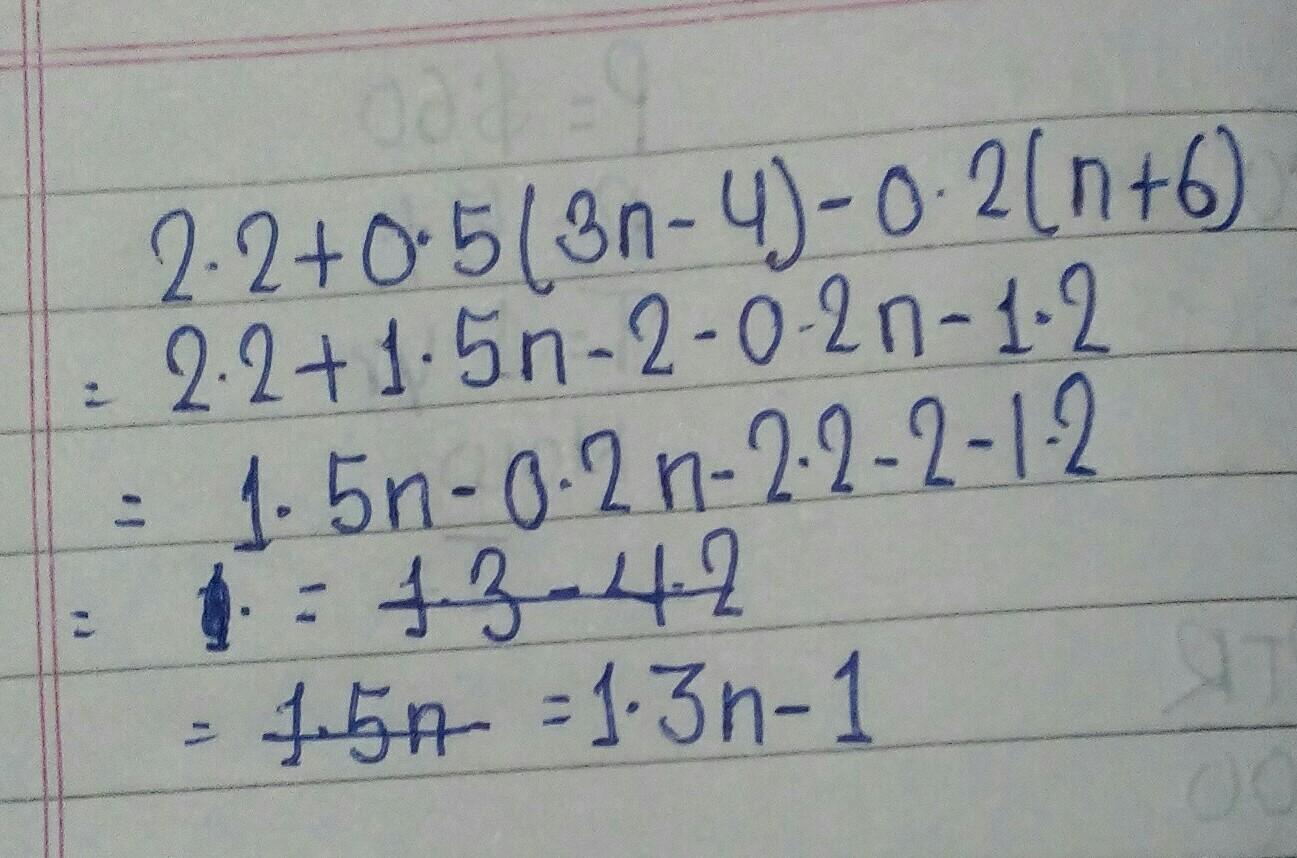 2.2+0.5(3n-4)-0.2(n+6)
= 2.2+1.5n-2-0.2n-1.2
= 1.5n-0.2n-2.2-2-1.2
= 1. = 1.3-4.2
= 1.5n- =1.3n-1